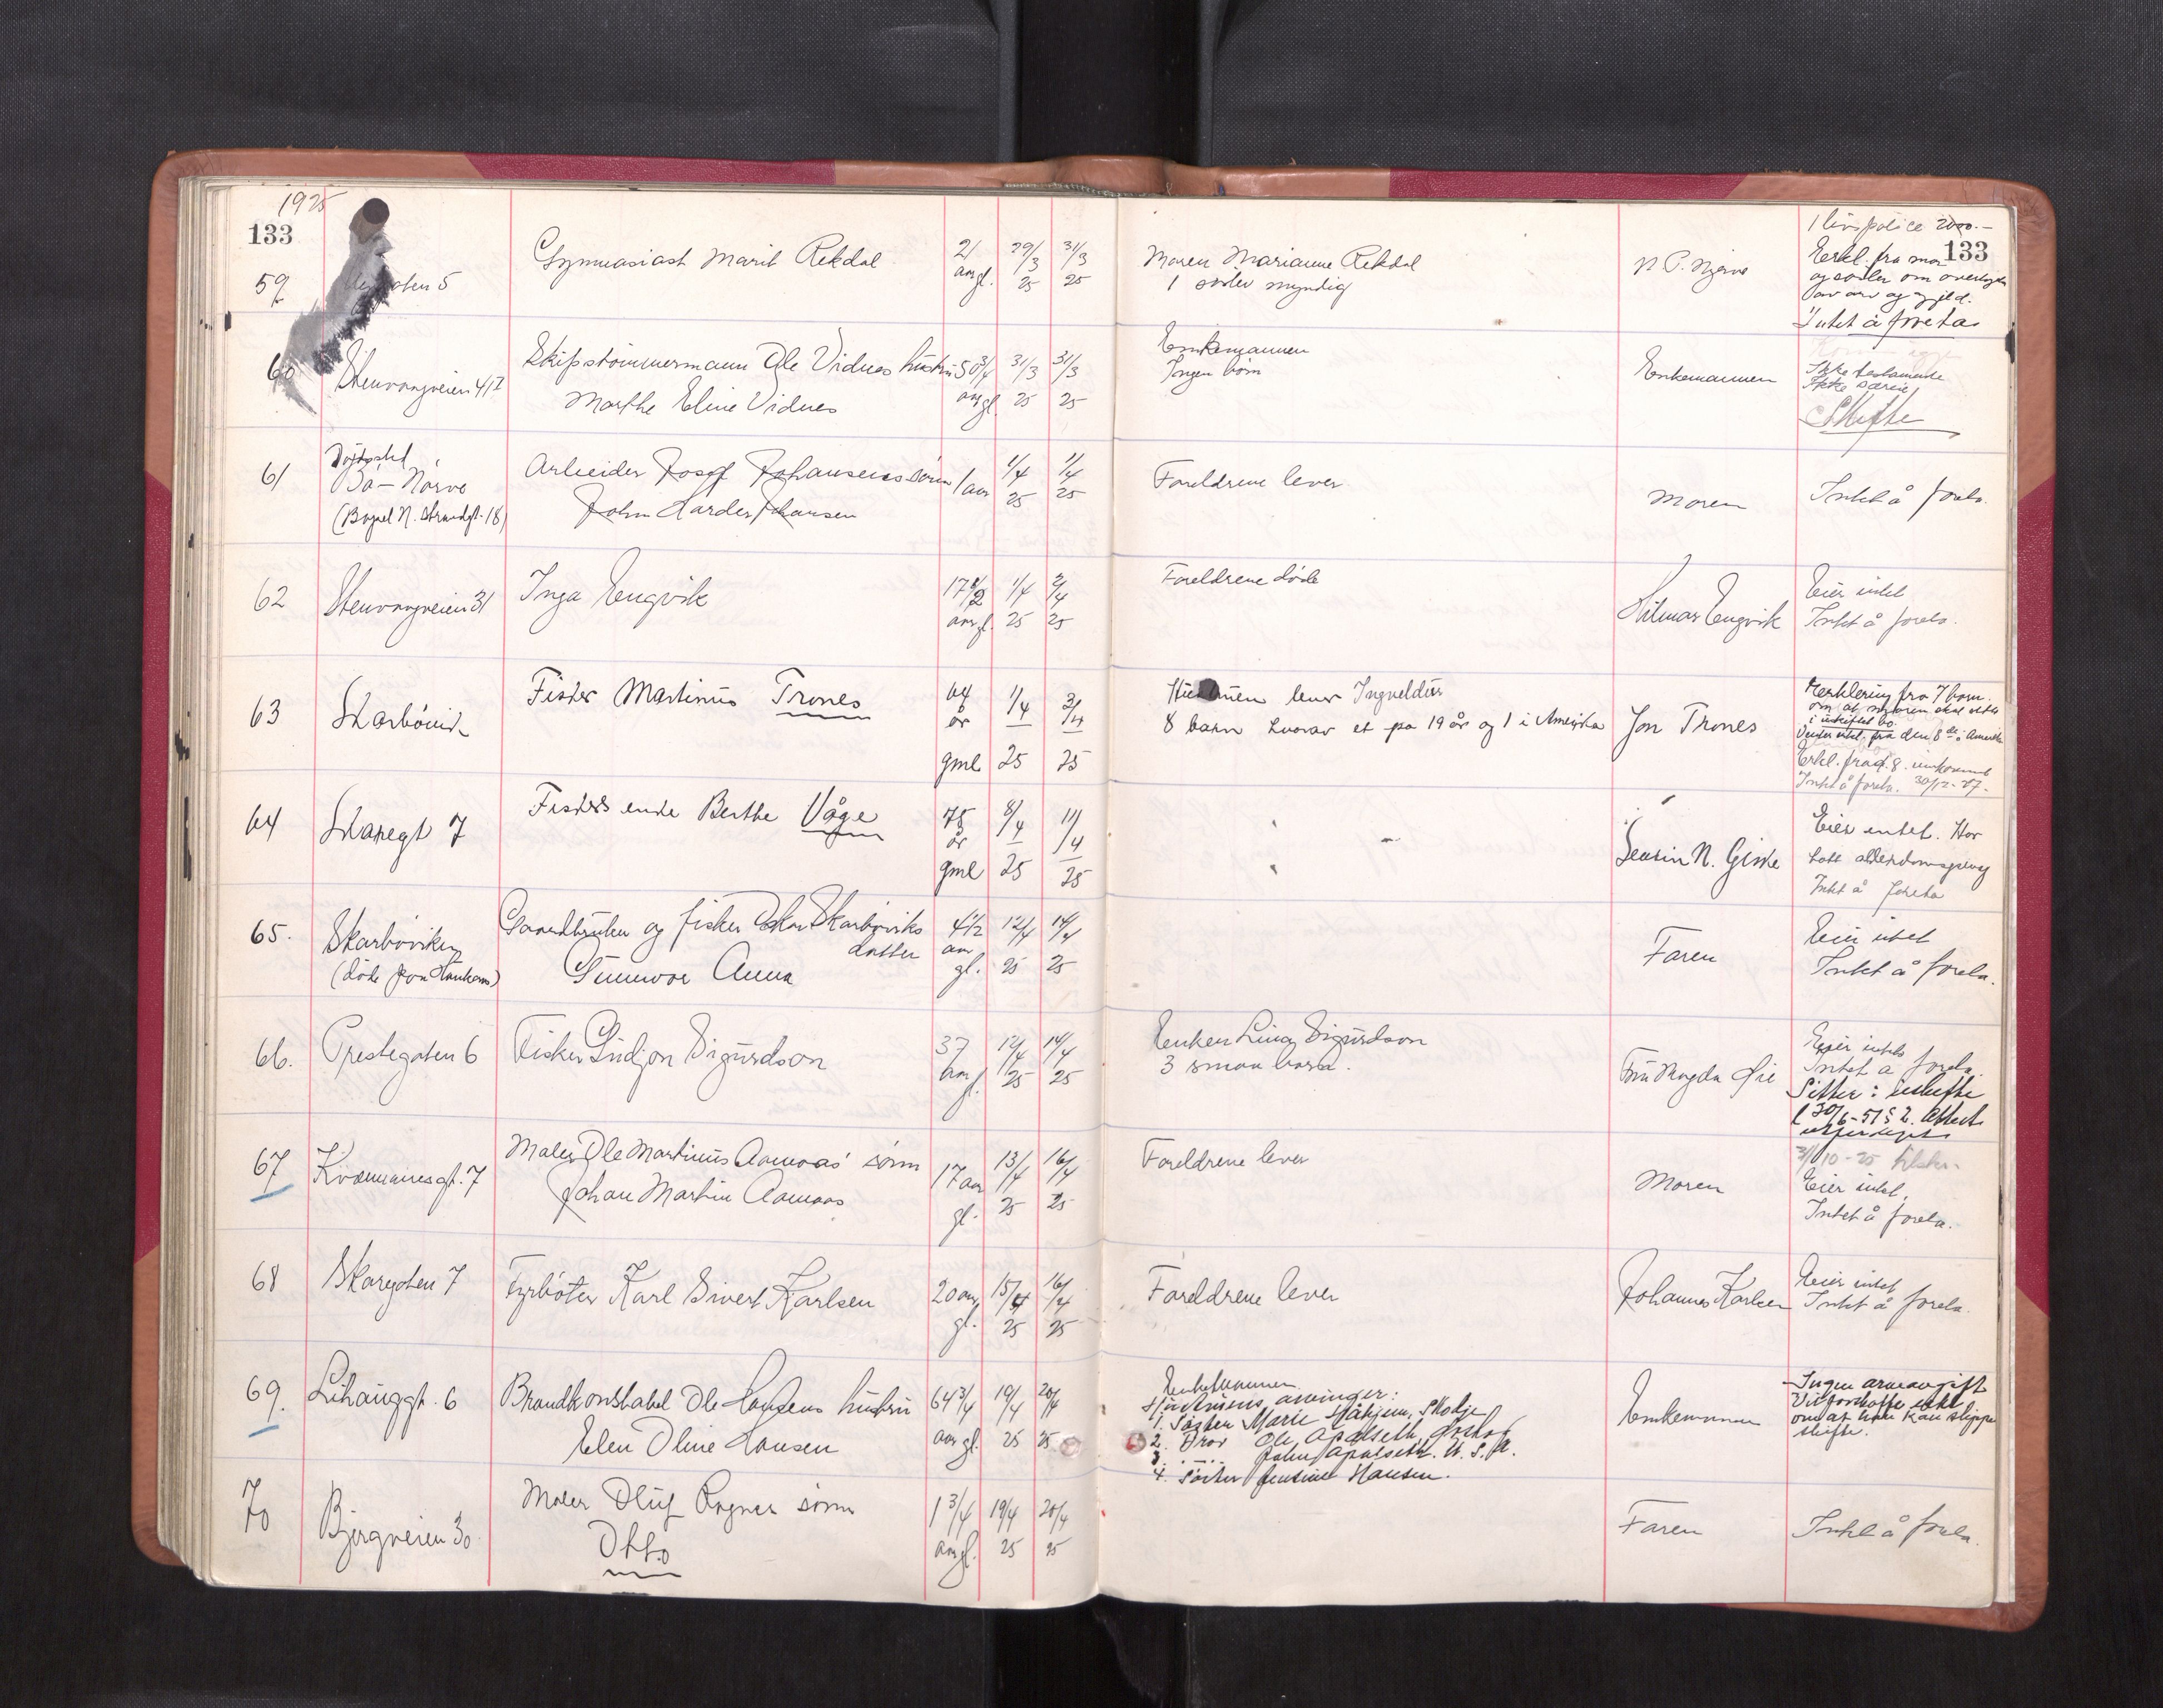 1925
133
59
gaten 5
Gymnasiast Marit Rekdal
21
aar gl.
29/3
25
31/3
25
Moren Marianne Rekdal
1 søster myndig
N. P. Nørve
1 livspolice 2000.-
133
Erkl. fra mor
og søster om overtagelse
av arv og gjeld.
Intet å foreta
60
Stenvaagveien 41 I
Skipstømmermann Ole Vidnes hustru
Marthe Eline Vidnes
50 3/4
aar gl.
31/3
25
31/3
25
Enkemannen
Ingen børn
Enkemannen
Ikke testamente
Ikke særeie
Skifte
61
Dødsfødt
Bå - Nørve
(Bopel N. Strandgt. 18)
Arbeider Josef Johansens sønn
John Harder Johansen
1 aar
1/4
25
1/4
25
Foreldrene lever
Moren
Intet å foreta.
62
Stenvaagveien 31
Inga Engvik
17 1/2
aar gl.
1/4
25
2/4
25
Foreldrene døde
Hilmar Engvik
Eier intet
Intet å foreta.
63
Skarbövik
Fisker Martinus Trones
64
år
gml
1/4
25
3/4
25
Hustruen lever Ingveldur
8 barn hvorav et på 19 år og 1 i Amerika
Jon Trones
Erklering fra 7 barn
om at moren skal sitte
i uskiftet bo.
Venter erkl. fra den 8de i Amerika
Erkl. fra d. 8. innkommet
Intet å foreta. 30/12-27.
64
Skaregt 7
Fiskers enke Berthe Våge
78
år
gml
8/4
25
11/4
25
Jensin N. Giske
Eier intet. Har
hatt alderdomspleng
Intet å foreta
65.
Skarbøviken
(døde paa Haukaas)
Gaardbruker og fisker Oskar Skarbøviks
datter
Gunvor Anna
4 1/2
aar
gl.
12/4
25
14/4
25
Faren
Eier intet
Intet å foreta.
66.
Prestegaten 6
Fisker Gudjon Sigurdson
37
aar
gl.
12/4
25
14/4
25
Enken Lina Sigurdson
3 smaa barn.
Fru Magda Øie
Eier intet
Intet å foreta.
Sitter i uskifte
l 30/6-51 § 2. Attest
utferdiget
67
Kræmmeresgt. 7
Maler Ole Martinus Aamaas' sønn
Johan Martin Aamaas
17 aar
gl.
13/4
25
16/4
25
Foreldrene lever
Moren
3/10-25
Eier intet.
Intet å foreta.
68
Skaregaten 7
Fyrbøter Karl Sivert Karlsen
20 aar
gl.
15/4
25
16/4
25
Foreldrene lever
Johannes Karlsen
Eier intet
Intet å foreta.
69.
Lihauggt. 6
Brandkonstabel Ole Hansens hustru
Elen Oline Hansen
64 3/4
aar gl.
19/4
25
20/4
25
Enkemannen
Hustruens arvinger:
1. Søster Marie Håhjem, Skodje
2. Bror Ole Apalseth,
3. -..- John Apalseth. U. S. A.
4. Søster Jensine Hansen.
Enkemannen
Ingen arveavgift
Vil forskaffe erkl
om at han kan slippe
skifte.
70
Bjørgveien 30
Maler Oluf Ragnes sønn
Otto
1 3/4
aar gl.
19/4
25
20/4
25
Faren
Intet å foreta.